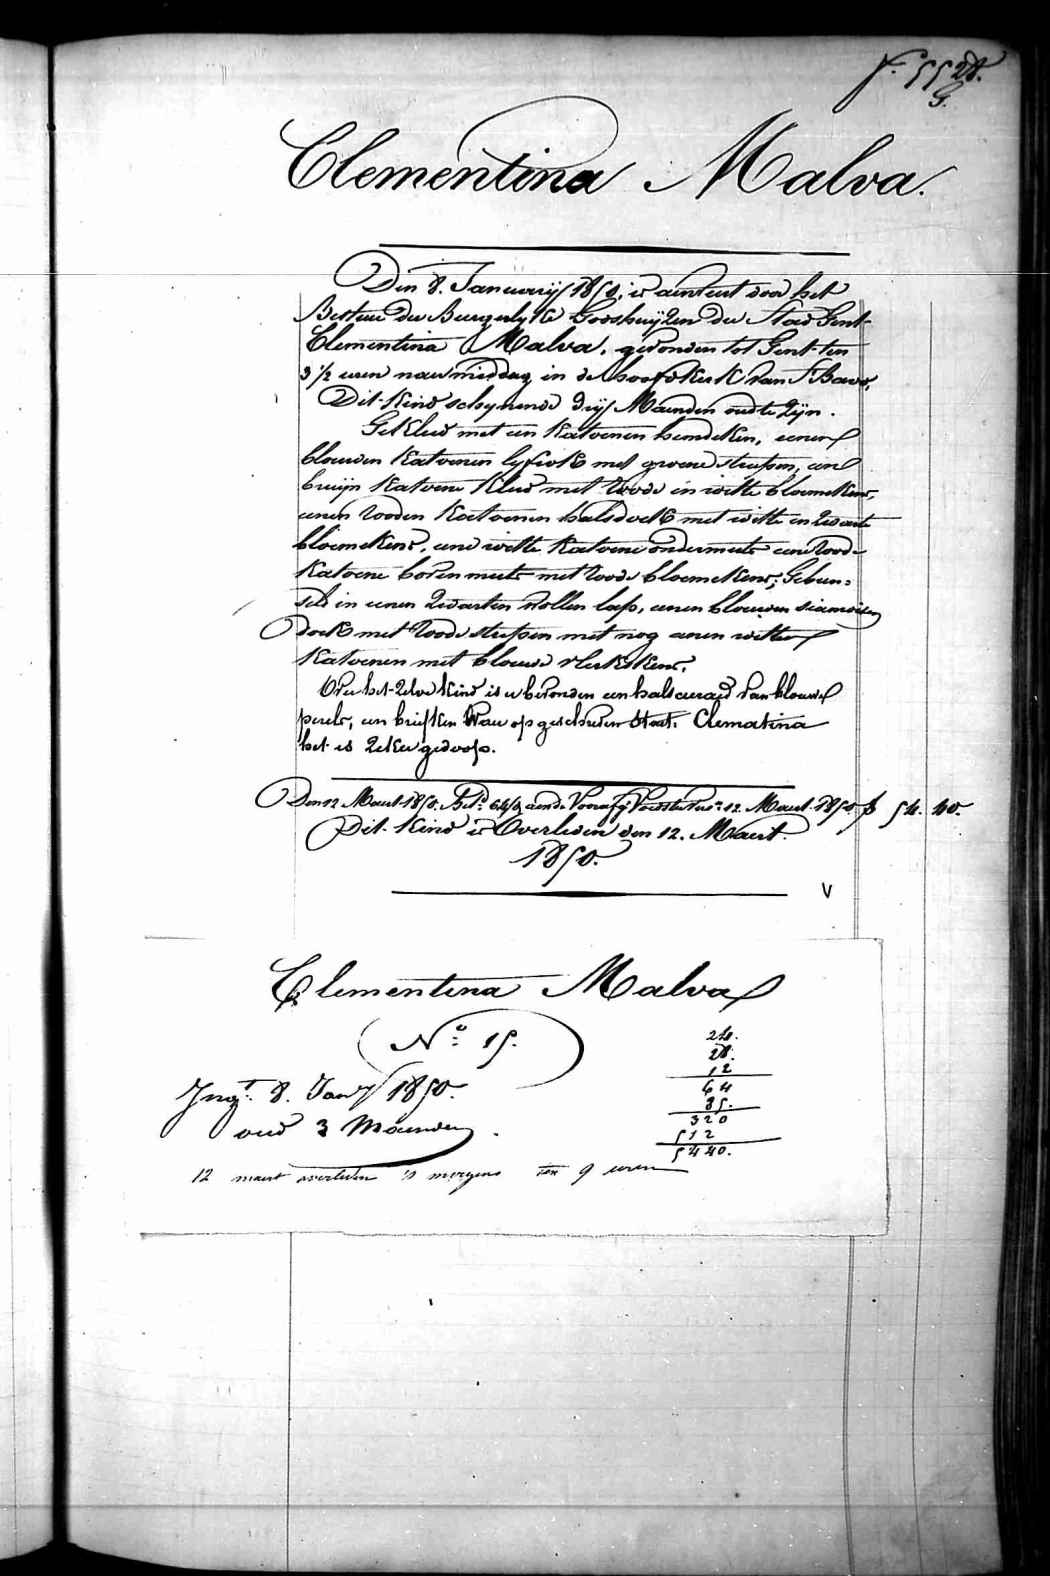 f.° 5528.
G.
Clementina Malva.
Den 8. Januarij 1850, is aenveert door het
Bestuur der Burgerlyke Godshuijzen der Stad Gent
Clementina Malva, gevonden tot Gent ten
3 1/2 uren naermiddag in de hoofdkerk van St Bavo,
Dit Kind schynende drij Maenden oud te zijn.
Gekleed met een Katoenen hemdeken, eenen
blauwen Katoenen lyfrok met groene streepen, een
bruijn Katoene Kleed met Roode in witte bloemekens,
eenen rooden Katoenen halsdoek met witte en zwarte
bloemekens, eene witte Katoene ondermuts eene roode
Katoene bovenmuts met roode bloemekens; Gebun-
seld in eenen zwarten wollen lap, eenen blauwen siamoisen
doek met roode streepen met nog eenen witten
Katoenen met blauwe vlekskens.
Over het zelve Kind is er bevonden een halscieraed van blauwe
perels, een briefken waer op geschreven staet. Clematina
het is zeker gedoopt.
Den 12 Maert 1850. Bet.d 64/d aen de Voedster 12. Maert 1850 f 54. 40.
Dit Kind is Overleden den 12. Maert
1850.
V
Clementina Malva
N.° 15.
Ing.t 8. Jany 1850.
oud 3 Maenden.
12 maert overleden 's morgens ten 9 uren
24.
28.
12
64
85.
320
512
5440.